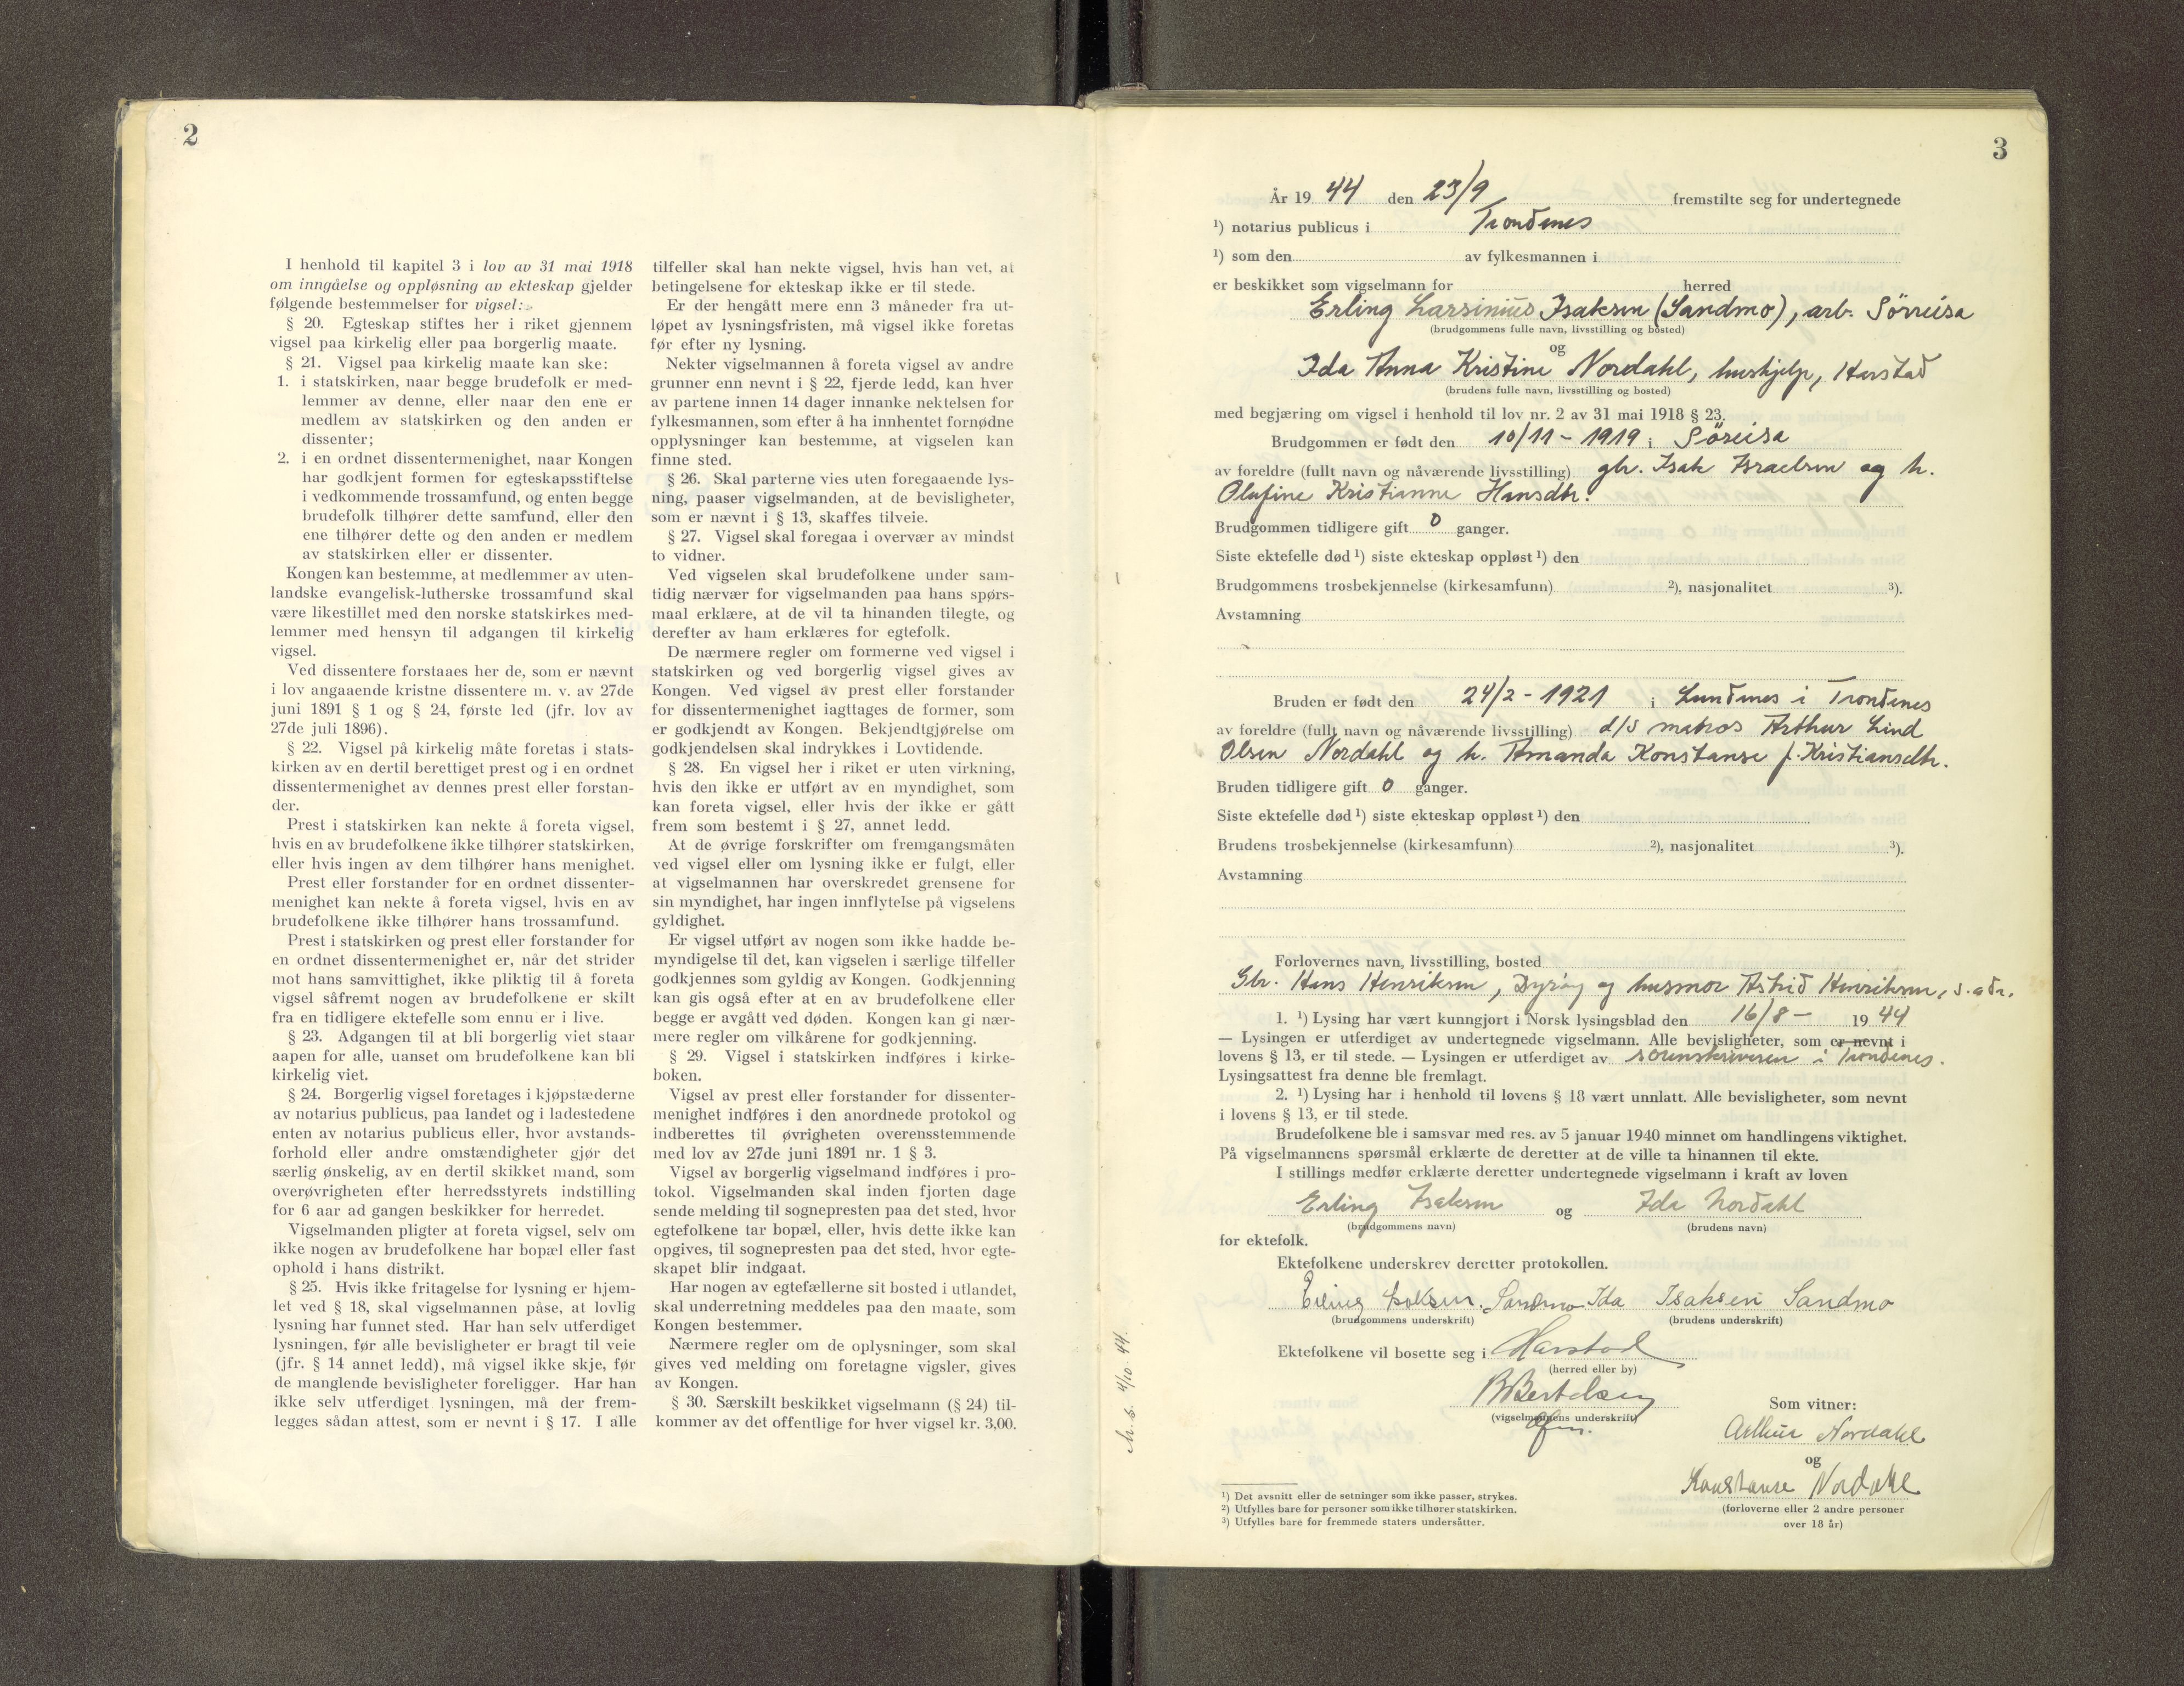 2
I henhold til kapitel 3 i lov av 31 mai 1918
om inngåelse og oppløsning av ekteskap gjelder
følgende bestemmelser for vigsel:
§ 20. Egteskap stiftes her i riket gjennem
vigsel paa kirkelig eller paa borgerlig maate.
§ 21. Vigsel paa kirkelig maate kan ske:
1. i statskirken, naar begge brudefolk er med-
lemmer av denne, eller naar den ene er
medlem av statskirken og den anden er
dissenter;
2. i en ordnet dissentermenighet, naar Kongen
har godkjent formen for egteskapsstiftelse
i vedkommende trossamfund, og enten begge
brudefolk tilhører dette samfund, eller den
ene tilhører dette og den anden er medlem
av statskirken eller er dissenter.
Kongen kan bestemme, at medlemmer av uten-
landske evangelisk-lutherske trossamfund skal
være likestillet med den norske statskirkes med-
lemmer med hensyn til adgangen til kirkelig
vigsel.
Ved dissentere forstaaes her de, som er nævnt
i lov angaaende kristne dissentere m. v. av 27de
juni 1891 § 1 og § 24, første led (jfr. lov av
27de juli 1896).
§ 22. Vigsel på kirkelig måte foretas i stats-
kirken av en dertil berettiget prest og i en ordnet
dissentermenighet av dennes prest eller forstan-
der.
Prest i statskirken kan nekte å foreta vigsel,
hvis en av brudefolkene ikke tilhører statskirken,
eller hvis ingen av dem tilhører hans menighet.
Prest eller forstander for en ordnet dissenter-
menighet kan nekte å foreta vigsel, hvis en av
brudefolkene ikke tilhører hans trossamfund.
Prest i statskirken og prest eller forstander for
en ordnet dissentermenighet er, når det strider
mot hans samvittighet, ikke pliktig til å foreta
vigsel såfremt nogen av brudefolkene er skilt
fra en tidligere ektefelle som ennu er i live.
§ 23. Adgangen til at bli borgerlig viet staar
aapen for alle, uanset om brudefolkene kan bli
kirkelig viet.
§ 24. Borgerlig vigsel foretages i kjøpstæderne
av notarius publicus, paa landet og i ladestedene
enten av notarius publicus eller, hvor avstands-
forhold eller andre omstændigheter gjør det
særlig ønskelig, av en dertil skikket mand, som
overøvrigheten efter herredsstyrets indstilling
for 6 aar ad gangen beskikker for herredet.
Vigselmanden pligter at foreta vigsel, selv om
ikke nogen av brudefolkene har bopæl eller fast
ophold i hans distrikt.
§ 25. Hvis ikke fritagelse for lysning er hjem-
let ved § 18, skal vigselmannen påse, at lovlig
lysning har funnet sted. Har han selv utferdiget
lysningen, før alle bevisligheter er bragt til veie
(jfr. § 14 annet ledd), må vigsel ikke skje, før
de manglende bevisligheter foreligger. Har han
ikke selv utferdiget lysningen, må der frem-
legges sådan attest, som er nevnt i § 17. I alle
tilfeller skal han nekte vigsel, hvis han vet, at
betingelsene for ekteskap ikke er til stede.
Er der hengått mere enn 3 måneder fra ut-
løpet av lysningsfristen, må vigsel ikke foretas
før efter ny lysning.
Nekter vigselmannen å foreta vigsel av andre
grunner enn nevnt i § 22, fjerde ledd, kan hver
av partene innen 14 dager innanke nektelsen for
fylkesmannen, som efter å ha innhentet fornødne
opplysninger kan bestemme, at vigselen kan
finne sted.
§ 26. Skal parterne vies uten foregaaende lys-
ning, paaser vigselmanden, at de bevisligheter,
som er nævnt i § 13, skaffes tilveie.
§ 27. Vigsel skal foregaa i overvær av mindst
to vidner.
Ved vigselen skal brudefolkene under sam-
tidig nærvær for vigselmanden paa hans spørs-
maal erklære, at de vil ta hinanden tilegte, og
derefter av ham erklæres for egtefolk.
De nærmere regler om formerne ved vigsel i
statskirken og ved borgerlig vigsel gives av
Kongen. Ved vigsel av prest eller forstander
for dissentermenighet iagttages de former, som
er godkjendt av Kongen. Bekjendtgjørelse om
godkjendelsen skal indrykkes i Lovtidende.
§ 28. En vigsel her i riket er uten virkning,
hvis den ikke er utført av en myndighet, som
kan foreta vigsel, eller hvis der ikke er gått
frem som bestemt i § 27, annet ledd.
At de øvrige forskrifter om fremgangsmåten
ved vigsel eller om lysning ikke er fulgt, eller
at vigselmannen har overskredet grensene for
sin myndighet, har ingen innflytelse på vigselens
gyldighet.
Er vigsel utført av nogen som ikke hadde be-
myndigelse til det, kan vigselen i særlige tilfeller
godkjennes som gyldig av Kongen. Godkjenning
kan gis også efter at en av brudefolkene eller
begge er avgått ved døden. Kongen kan gi nær-
mere regler om vilkårene for godkjenning.
§ 29. Vigsel i statskirken indføres i kirke-
boken.
Vigsel av prest eller forstander for dissenter-
menighet indføres i den anordnede protokol og
indberettes til øvrigheten overensstemmende
med lov av 27de juni 1891 nr. 1 § 3.
Vigsel av borgerlig vigselmand indføres i pro-
tokol. Vigselmanden skal inden fjorten dage
sende melding til sognepresten paa det sted, hvor
egtefolkene tar bopæl, eller, hvis dette ikke kan
opgives, til sognepresten paa det sted, hvor egte-
skapet blir indgaat.
Har nogen av egtefællerne sit bosted i utlandet,
skal underretning meddeles paa den maate, som
Kongen bestemmer.
Nærmere regler om de oplysninger, som skal
gives ved melding om foretagne vigsler, gives
av Kongen.
§ 30. Særskilt beskikket vigselmann (§ 24) til-
kommer av det offentlige for hver vigsel kr. 3,00.
3
År 1944 den 23/9 fremstilte seg for undertegnede
1) notarius publicus i Trondenes
1) som den av fylkesmannen i
er beskikket som vigselmann for herred
Erling Larsinius Isaksen (Sandmo), arb. Sörreisa
(brudgommens fulle navn, livsstilling og bosted)
og
Ida Anna Kristine Nordahl, hushjelp, Harstad
(brudens fulle navn, livsstilling og bosted)
med begjæring om vigsel i henhold til lov nr. 2 av 31 mai 1918 § 23.
Brudgommen er født den 10/11 - 1919 i Söreisa
av foreldre (fullt navn og nåværende livsstilling) gbr. Isak Israelsen og h.
Olufine Kristianne Hansdtr.
Brudgommen tidligere gift 0 ganger.
Siste ektefelle død 1) siste ekteskap oppløst 1) den
Brudgommens trosbekjennelse (kirkesamfunn) 2), nasjonalitet 3).
Avstamning
Bruden er født den 24/2 - 1921 i Lundenes i Trondenes
av foreldre (fullt navn og nåværende livsstilling) d/s matros Arthur Lind
Olsen Nordahl og h. Amanda Konstanse f. Kristiansdtr.
Bruden tidligere gift 0 ganger.
Siste ektefelle død 1) siste ekteskap oppløst 1) den
Brudens trosbekjennelse (kirkesamfunn) 2), nasjonalitet 3).
Avstamning
Forlovernes navn, livsstilling, bosted
Gbr. Hans Henriksen, Dyröy og husmor Astrid Henriksen, s. adr.
1. 1) Lysing har vært kunngjort i Norsk lysingsblad den 16/8 - 1944
— Lysingen er utferdiget av undertegnede vigselmann. Alle bevisligheter, som er nevnt i
lovens § 13, er til stede. — Lysingen er utferdiget av sorenskriveren i Trondenes.
Lysingsattest fra denne ble fremlagt.
2. 1) Lysing har i henhold til lovens § 18 vært unnlatt. Alle bevisligheter, som nevnt
i lovens § 13, er til stede.
Brudefolkene ble i samsvar med res. av 5 januar 1940 minnet om handlingens viktighet.
På vigselmannens spørsmål erklærte de deretter at de ville ta hinannen til ekte.
I stillings medfør erklærte deretter undertegnede vigselmann i kraft av loven
Erling Isaksen og Ida Nordahl
(brudgommens navn) (brudens navn)
for ektefolk.
Ektefolkene underskrev deretter protokollen.
Erling Isaksen. Sandmo Ida Isaksen Sandmo
(brudgommens underskrift) (brudens underskrift)
Ektefolkene vil bosette seg i Harstad
(herred eller by)
B Bertelsen
(vigselmannens underskrift)
Som vitner:
Arthur Nordahl
og
Konstanse Nordahl
(forloverne eller 2 andre personer
over 18 år)
1) Det avsnitt eller de setninger som ikke passer, strykes.
2) Utfylles bare for personer som ikke tilhører statskirken.
3) Utfylles bare for fremmede staters undersåtter.
4/10-44.